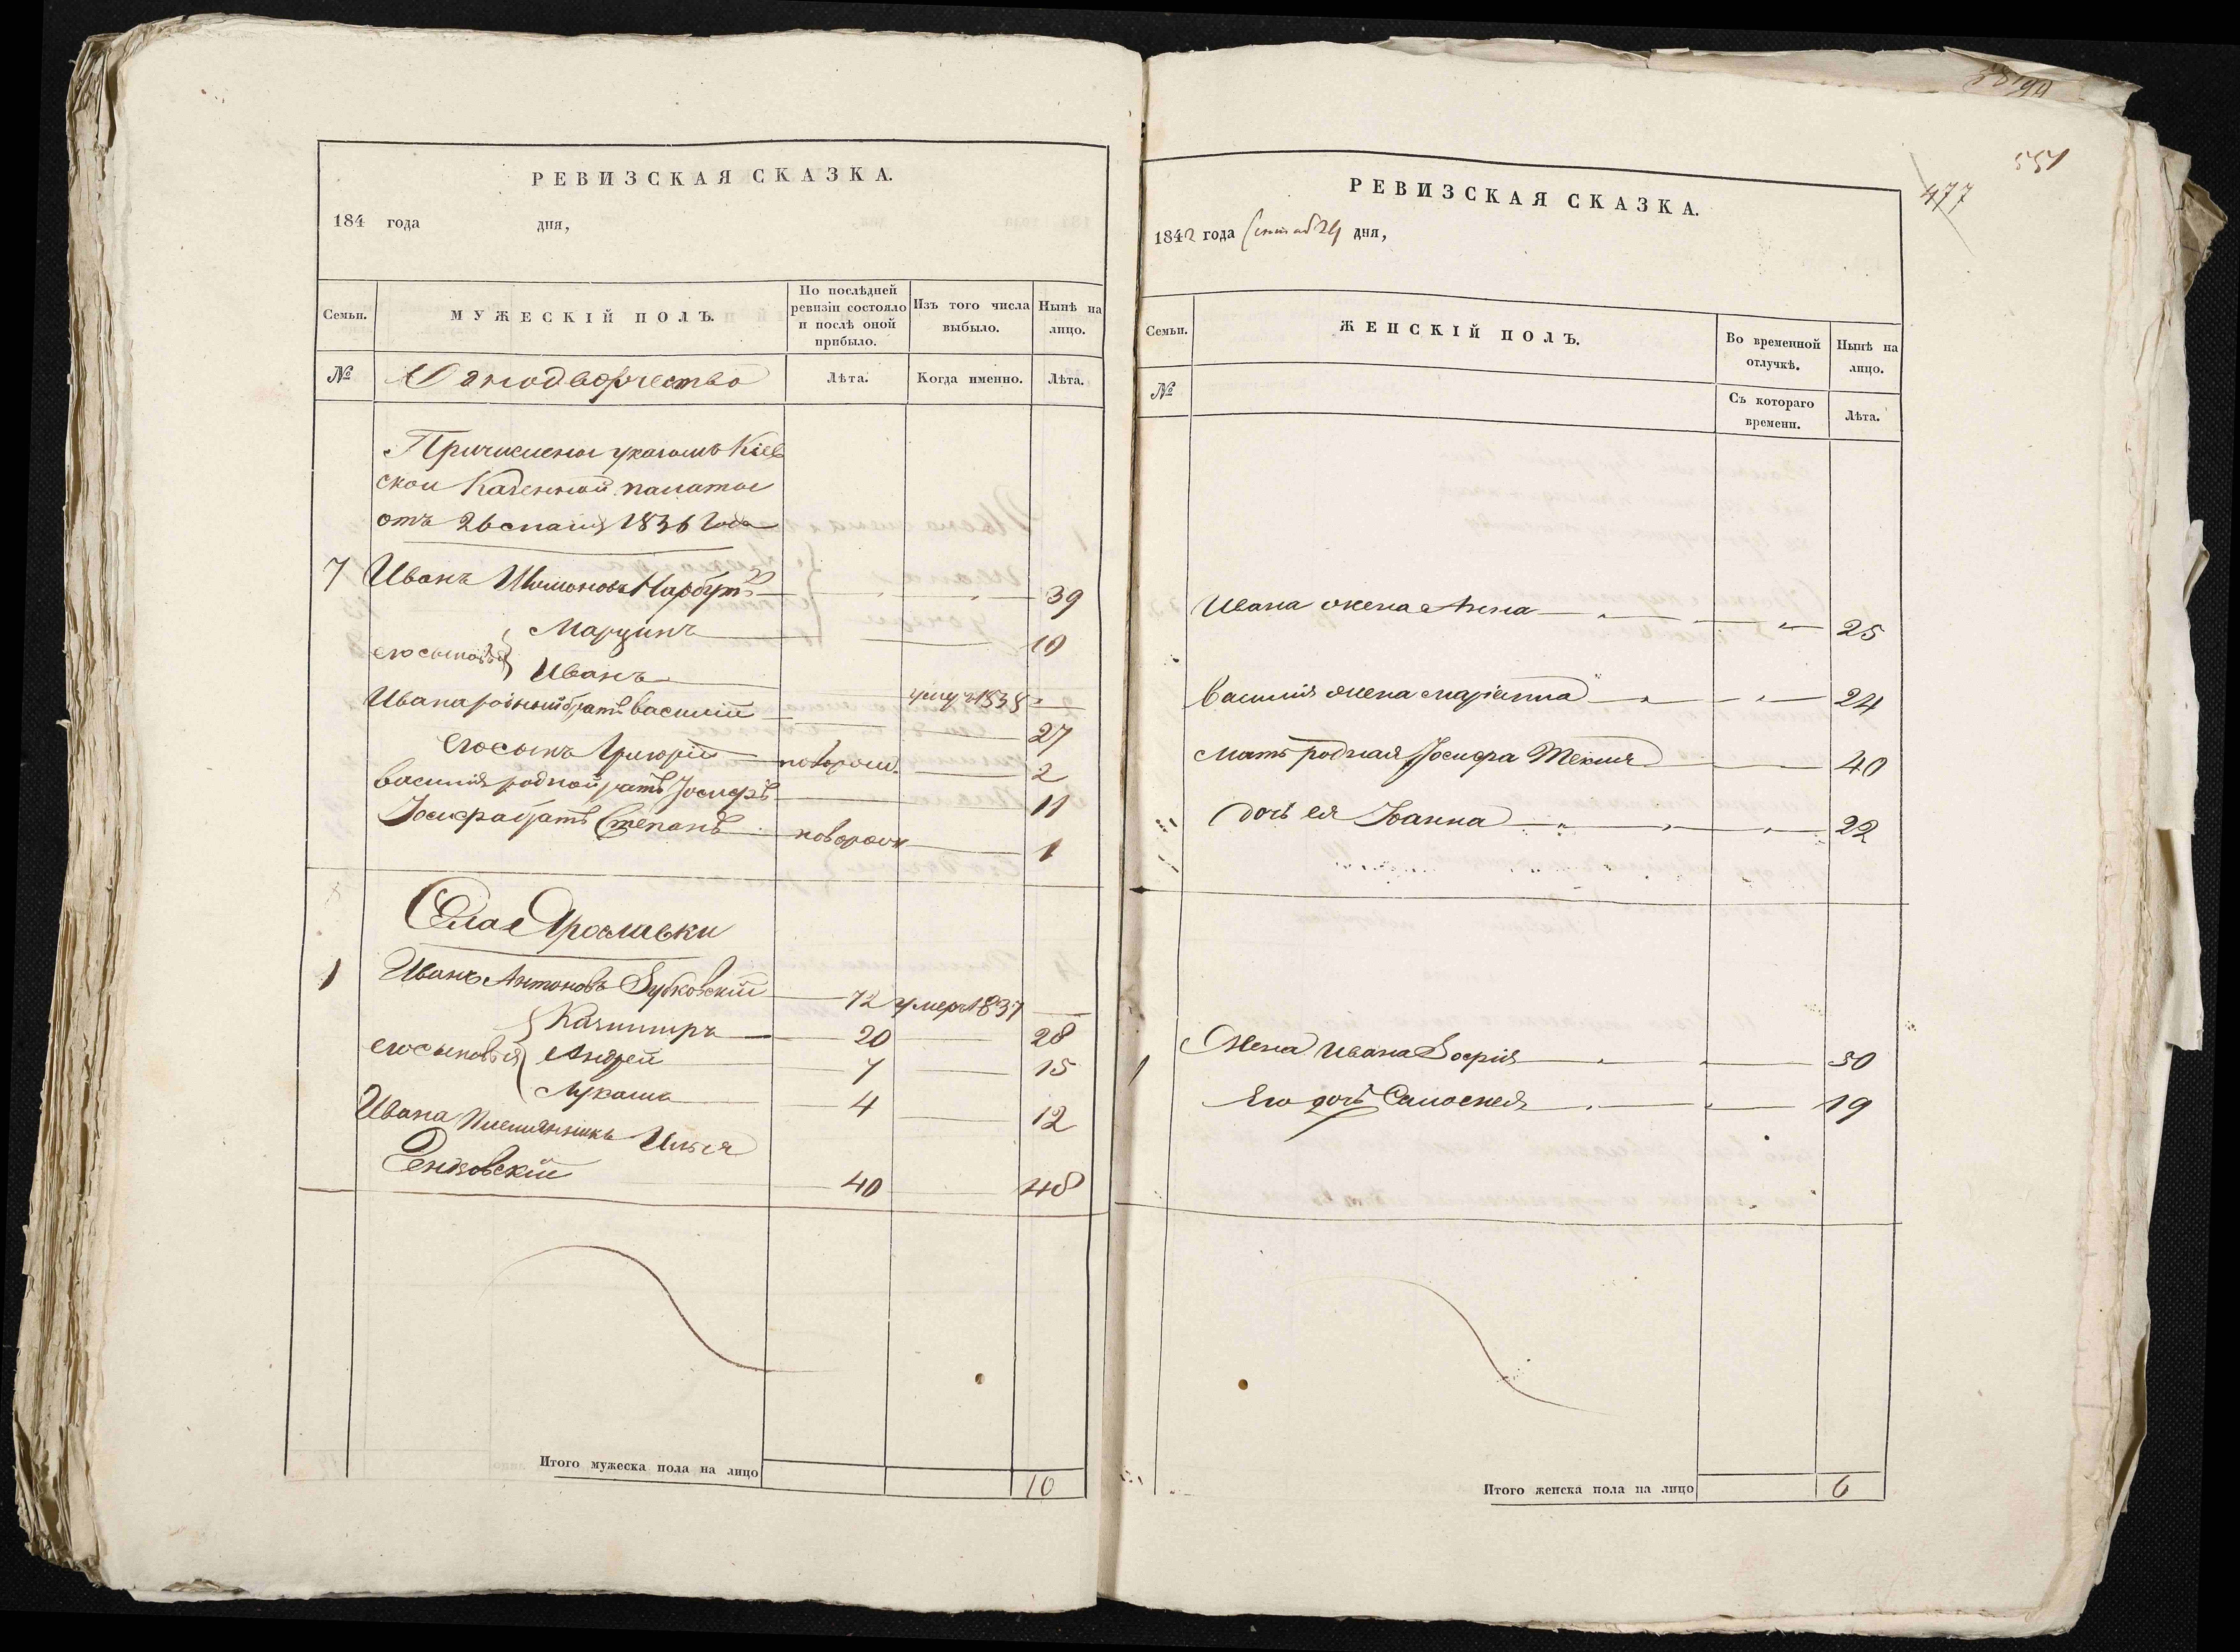 РЕВИЗСКАЯ СКАЗКА.
184 года дня,
Семьи.
МУЖЕСКІЙ ПОЛЪ.
По послѣдней ревизіи состояло и послѣ оной прибыло.
Изъ того числа выбыло.
Нынѣ на лицо.
№
Однодворчество
Лѣта.
Когда именно.
Лѣта.
Причислены указомъ Кіев
ской Казенной палаты
отъ 26 1836 года
7 Иванъ Шимоновъ Нарбутъ 39
Марцинъ 10
его сыновья
Иванъ 1838
Ивана родный братъ василій 27
его сынъ Григорій новорож. 2
василія родной братъ Іосифъ 11
Іосифа братъ Степанъ новорож 1
Села Ярославки
1 Иванъ Антоновъ Зубковскій 72 умеръ 1837
Казимиръ 20 28
его сыновья Андрей 7 15
Лукашъ 4 12
Ивана Племянникъ Илья
40 48
Итого мужеска пола на лицо 10
551
477
РЕВИЗСКАЯ СКАЗКА.
1842 года 24 дня,
Семьи.
ЖЕНСКІЙ ПОЛЪ.
Во временной отлучкѣ.
Нынѣ на лицо.
№
Съ котораго времени.
Лѣта.
Ивана жена Анна 25
василія жена маріанна 24
Мать родная Іосифа Текля 40
дочь ея Іоанна 22
1 Жена Ивана Зофія 50
Его дочь Саломея 19
Итого женска пола на лицо 6